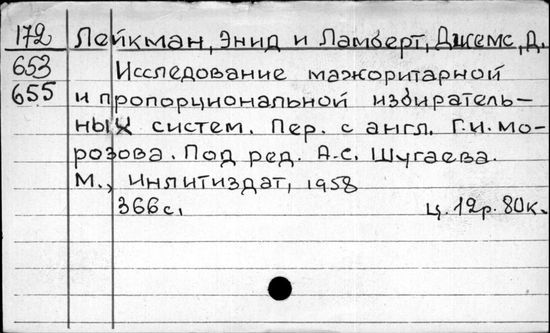 172 Лейкман, Энид и Ламберт, Джемс, Д.
653 Исследование мажоритарной
655 и пропорциональной избиратель-
ных систем. Пер. с англ. Г.И. Мо-
розова. Под ред. А.С. Шугаева.
М., Инлитиздат, 1958
366 с. Ц. 12р. 80к.